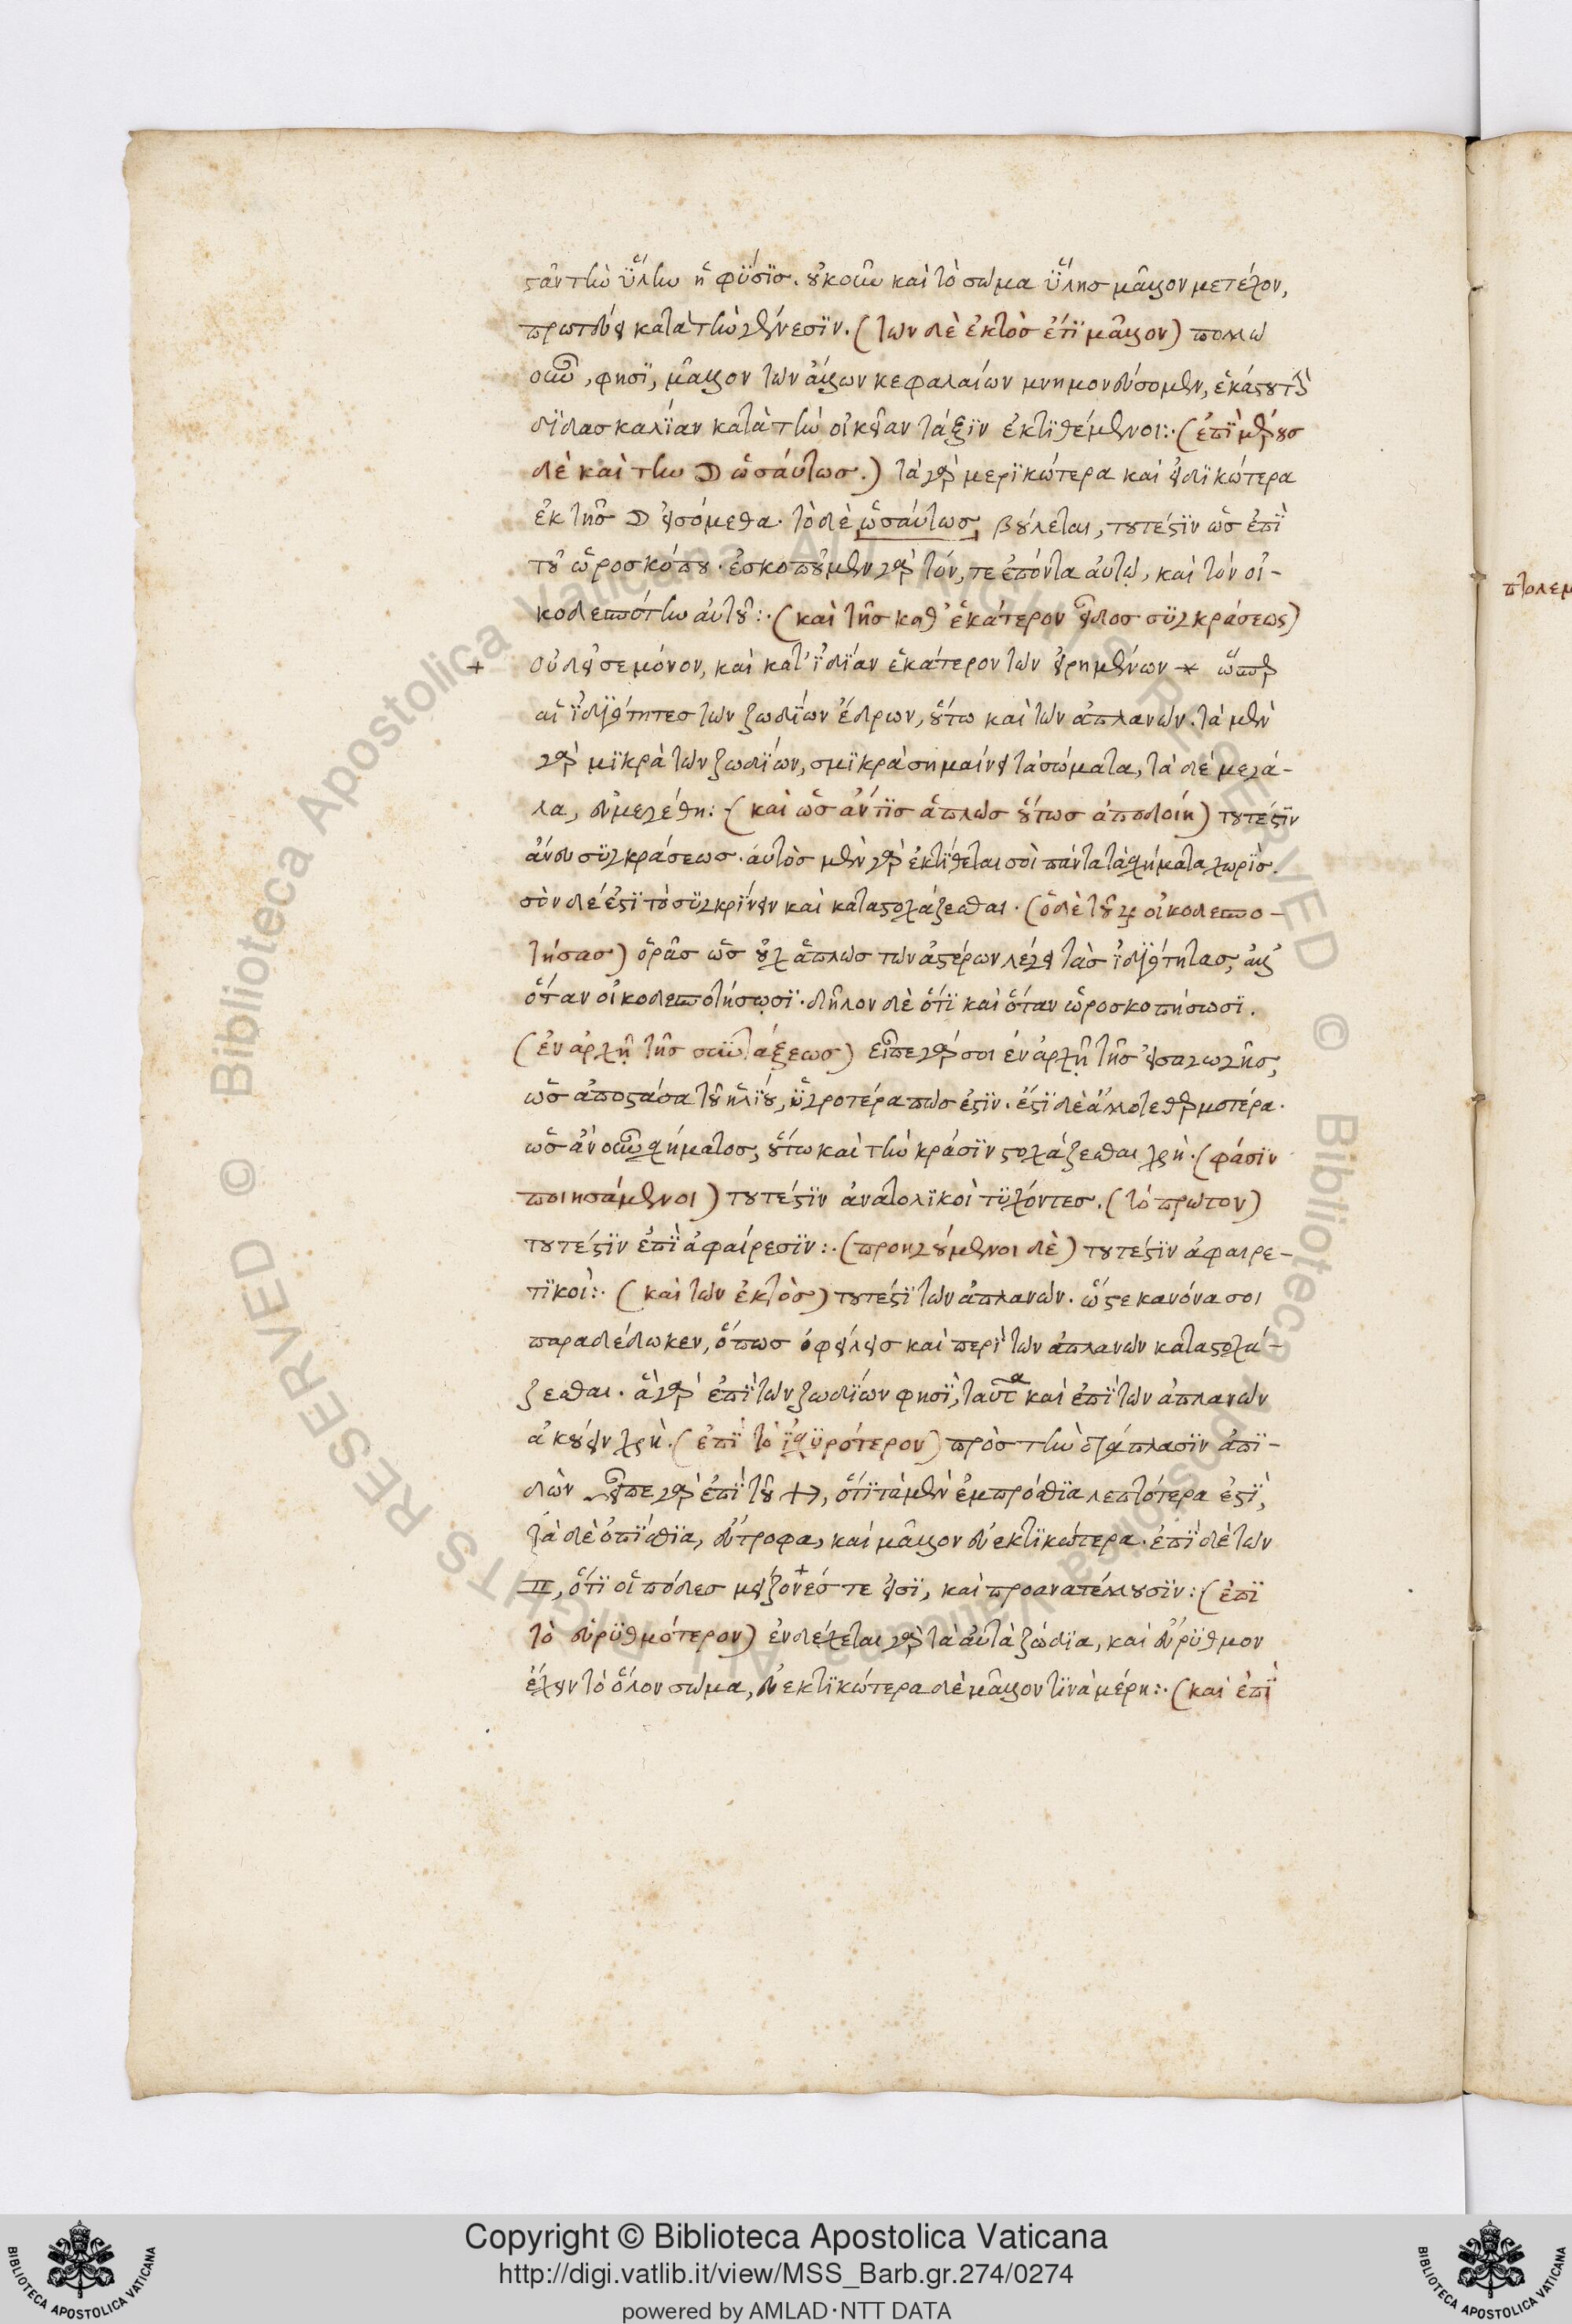 σᾶν τὴν ὕλην ἡ φύσϊσ. οὐκοῦν καὶ τὸ σῶμα ὕλησ μᾶλλον μετέχον,
πρωτεύει κατὰ τὴν γένεσϊν. (των δὲ ἐκτὸσ ἔτϊ μᾶλλον) πολλῶ
οὖν, φησϊ, μᾶλλον τῶν ἄλλων κεφαλαίων μνημονεύσομεν, ἑκάστου τὴν
δϊδασκαλΐαν κατὰ τὴν οἰκείαν τάξϊν ἐκτϊθέμενοι:· (ἐπϊ μέρουσ
δὲ καὶ την ☽ ὡσάυτωσ.) τὰ γὰρ μερϊκώτερα καὶ εἰδϊκώτερα
ἐκ τῆσ ☽ εἰσόμεθα. τὸ δὲ ὡσάυτωσ, βούλεται, τουτέστϊν ὡσ ἐπϊ
τοῦ ὡροσκόπου. ἐσκοποῦμεν γὰρ τόν, τε ἐπόντα ἀυτῷ, καὶ τὸν οἰ-
κοδεσπότην ἀυτοῦ:· (καὶ τῆσ καθ' ἑκάτερον εἶδοσ συγκράσεως)
+ οὐδεὶσ ε μόνον, καὶ κατ' ϊδϊαν ἑκάτερον τῶν εἰρημένων ⁎ ὥσπερ
αἱ ϊδϊότητεσ των ζωδϊων ἔδρων, οὕτω καὶ τῶν ἀπλανῶν. τὰ μὲν
γὰρ μϊκρὰ τῶν ζωδϊων, σμϊκρὰ σημαίνει τὰ σώματα, τὰ δὲ μεγά-
λα, εὐμεγέθη: (καὶ ὡσ ἄν τϊσ ἁπλῶσ οὕτωσ ἀποδοίη) τουτέστϊν
ἄνευ συγκράσεωσ. ἀυτὸσ μὲν γὰρ ἐκτΐθεται σοὶ πάντα τὰ σχήματα χωρϊσ.
σὸν δέ ἐστϊ τὸ συγκρΐνειν καὶ καταστοχάζεσθαι. (ὁ δὲ τοῦ ♃ οἰκοδεσπο-
τήσασ) ὁρᾶσ ὡσ οὐχ ἁπλῶσ τῶν ἀστέρων λέγει τὰσ ϊδϊότητασ, ἀλλ'
ὅταν οἰκοδεσποτήσωσϊ. δῆλον δὲ ὅτϊ καὶ ὅταν ὡροσκοπήσωσϊ.
(ἐν ἀρχῇ τῆσ συντάξεωσ) εἶπε γάρ σοι ἐν ἀρχῇ τῆσ εἰσαγωγῆσ,
ὡσ ἀποστᾶσα τοῦ ἡλϊου, ὑγροτέρα πώσ ἐστϊν. ἔστϊ δὲ ἄλλοτε θερμοτέρα.
ὡσ ἂν οὖν σχήματοσ, οὕτω καὶ τὴν κράσϊν στοχάζεσθαι χρή. (φάσϊν
ποιησάμενοι) τουτέστϊν ἀνατολϊκοὶ τυχόντεσ. (τὸ πρῶτον)
τουτέστϊν ἐπϊ ἀφαίρεσϊν:· (προηγούμενοι δὲ) τουτέστϊν ἀφαιρε-
τϊκοί:· (καὶ τῶν ἐκτὸσ) τουτέστϊ τῶν ἀπλανῶν. ὥστε κανόνα σοι
παραδέδωκεν, ὅπωσ ὀφείλεισ καὶ περὶ τῶν ἀπλανῶν καταστοχά-
ζεσθαι. ἃ γὰρ ἐπϊ τῶν ζωδϊων φησϊ, ταῦτα καὶ ἐπϊ τῶν ἀπλανῶν
ἀκούειν χρή. (ἐπϊ τὸ ϊσχυρότερον) πρὸσ τὴν διάπλασϊν ἀπϊ-
δών εἶπε γὰρ ἐπϊ τοῦ ♐, ὅτϊ τὰ μὲν ἐμπρόσθϊα λεπτότερα ἐστϊ,
τὰ δὲ ὀπϊσθϊα, εὔτροφα, καὶ μᾶλλον εὐεκτϊκώτερα. ἐπϊ δὲ τῶν
♊, ὅτϊ οἱ πόδεσ μείζονέσ τε εἰσϊ, καὶ προανατέλλουσϊν: (ἐπϊ
τὸ εὐρυθμότερον) ἐνδέχεται γὰρ τὰ ἀυτὰ ζώδϊα, καὶ εὔρυθμον
ἔχειν τὸ ὅλον σῶμα, εὐεκτϊκώτερα δὲ μᾶλλον τϊνὰ μέρη:· (καὶ ἐπϊ
πτολεμ
Copyright © Biblioteca Apostolica Vaticana
http://digi.vatlib.it/view/MSS_Barb.gr.274/0274
powered by AMLAD·NTT DATA